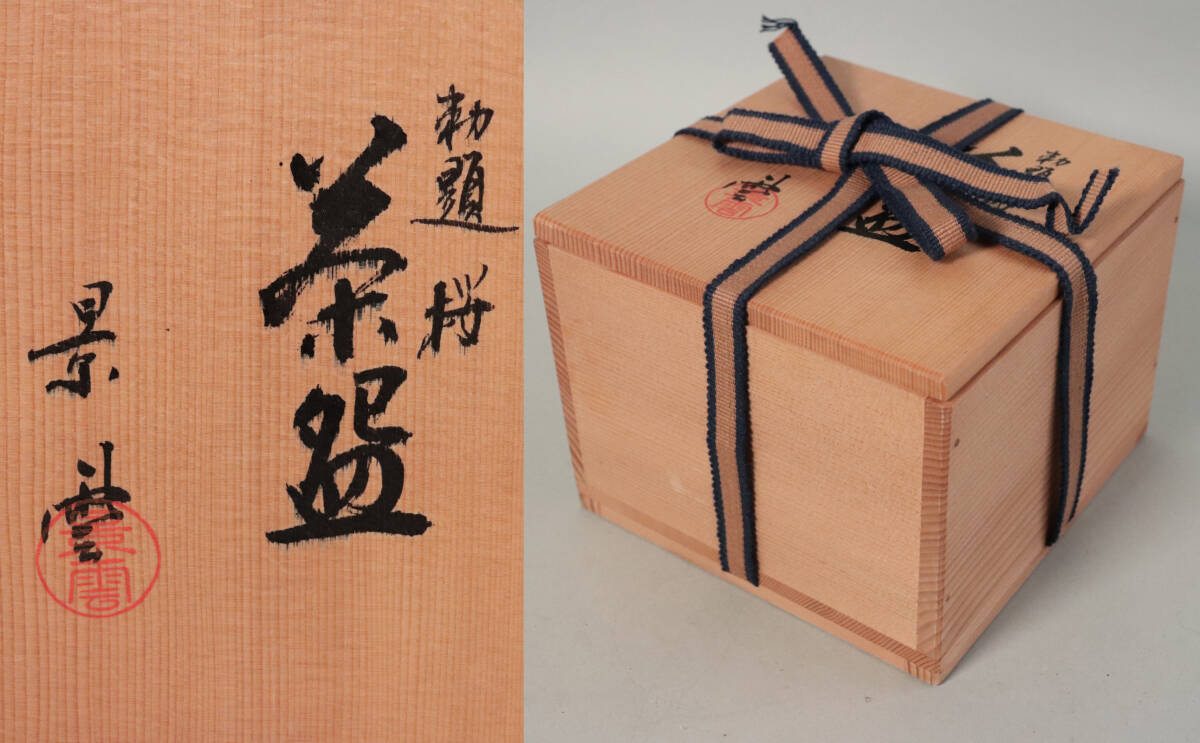 勅題 桜
茶盌
景雲
景雲
景雲